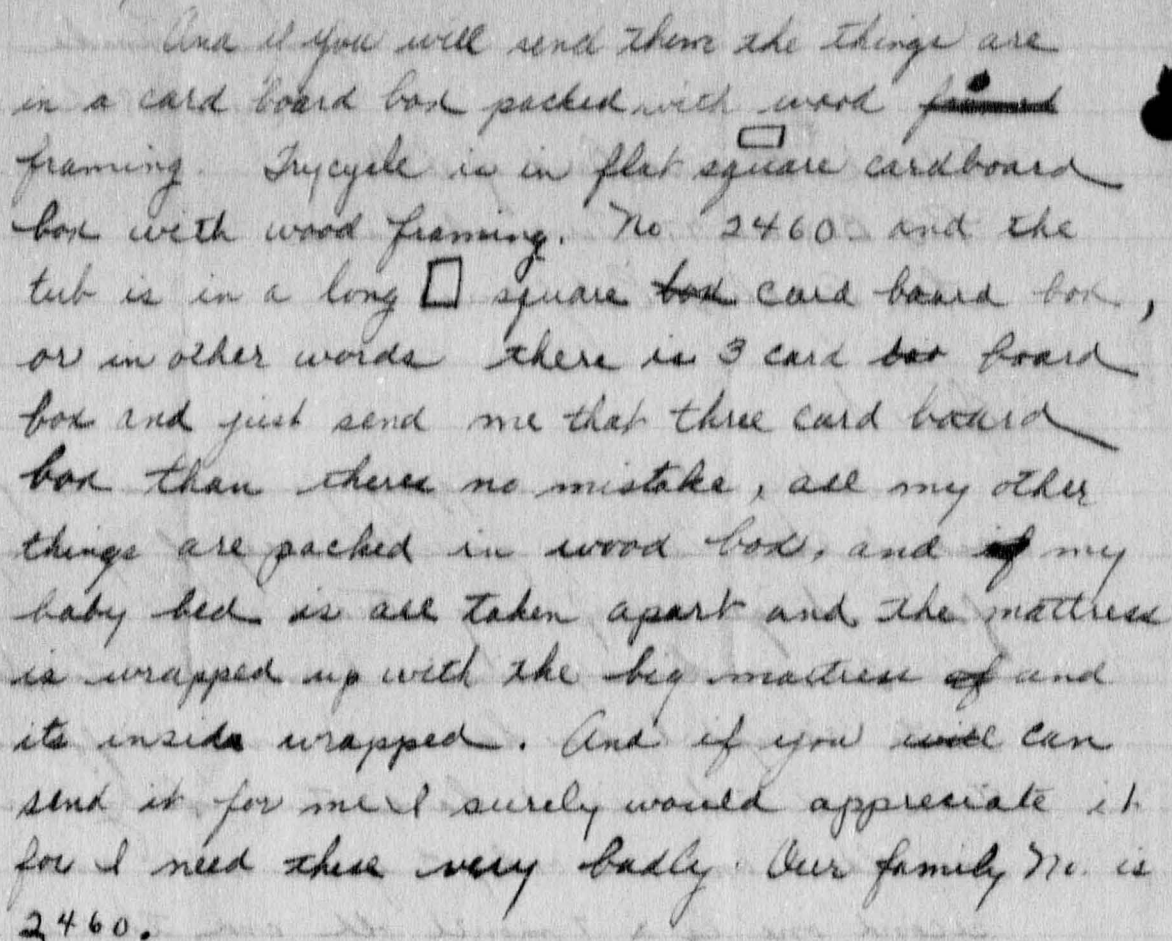 And if you will send them the things are
in a card board box packed with wood
framing. Trycycle is in flat square cardboard
box with wood framing. No. 2460 and the
tub is in a long square box card board box,
or in other words there is 3 card boo board
box and just send me that three card board
box than theres no mistake, all my other
things are packed in wood box, and if my
baby bed is all taken apart and the mattress
is wrapped up with the big mattress of and
its inside wrapped. And if you will can
send it for me I surely would appreciate it
for I need these very badly. Our family No. is
2460.